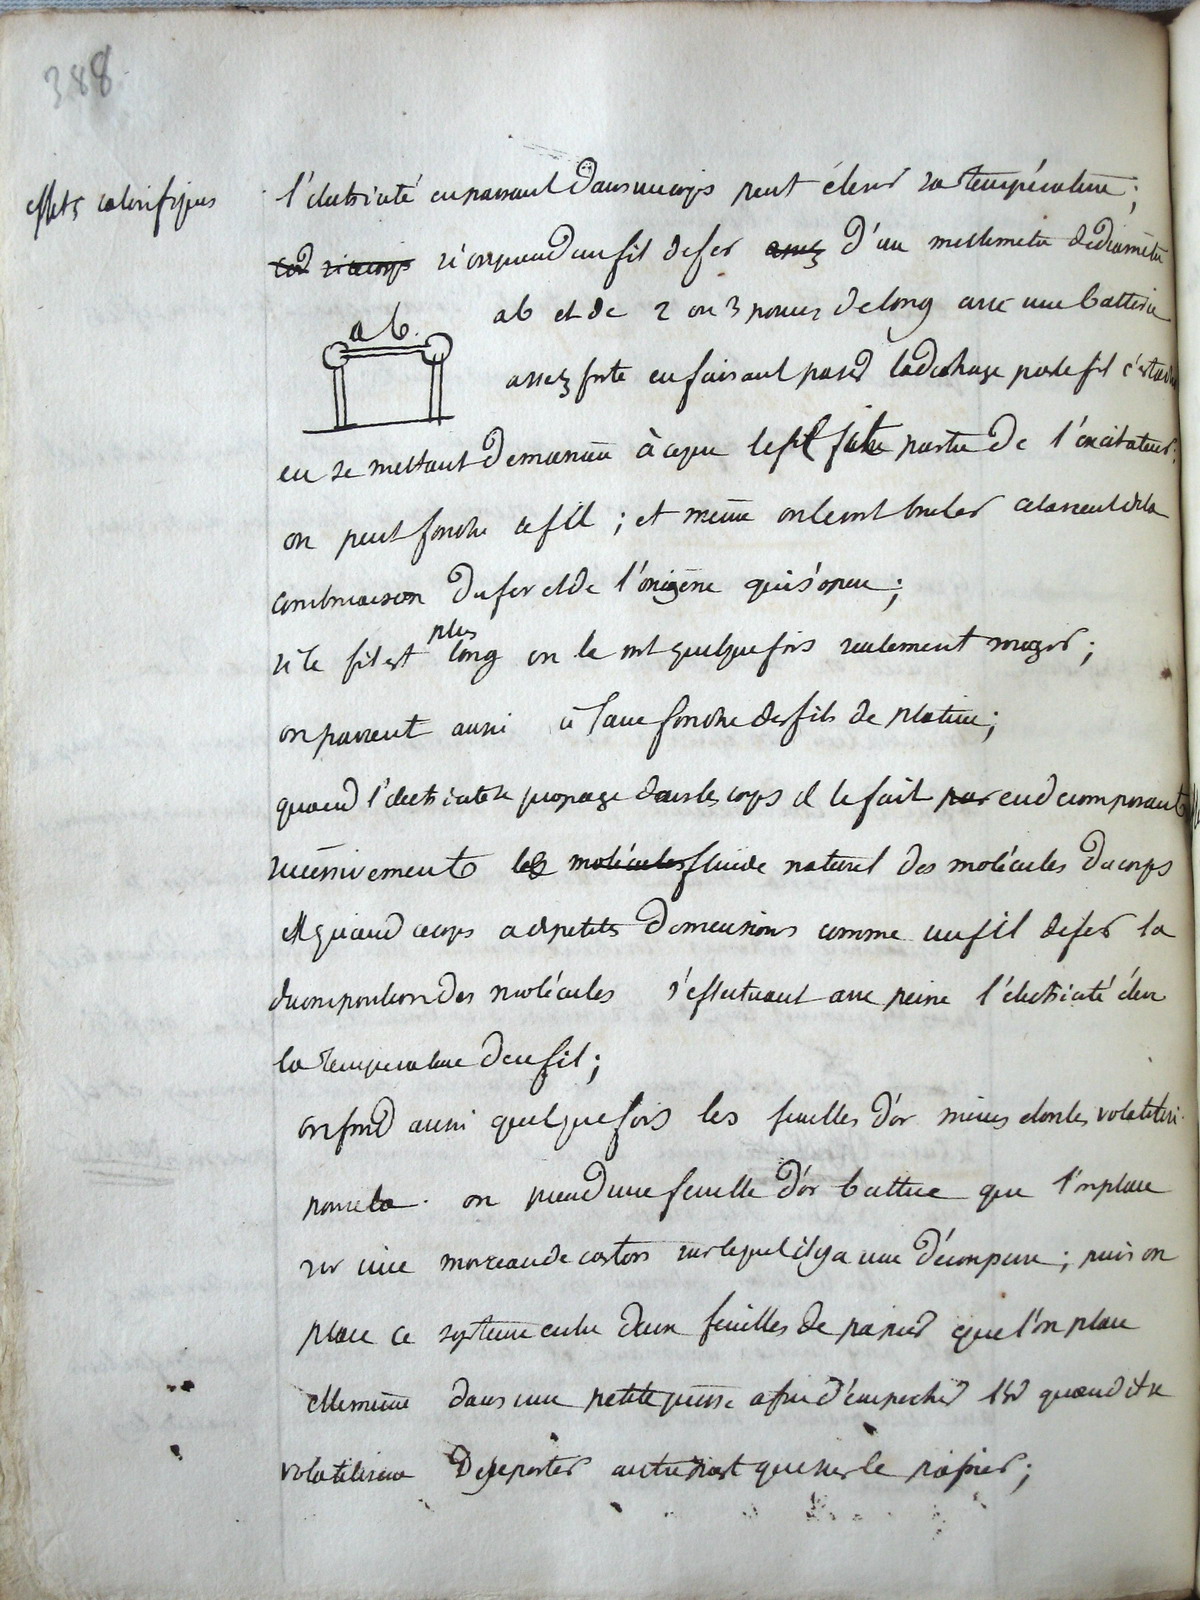 388
effets calorifiques
l'électricité en passant dans un corps peut élever sa température;
si ce corps si on prend un fil de fer assez d'un millimetre de diamètre
ab et de 2 ou 3 pouces de long avec une batterie
ab.
assez forte en faisant passer la décharge par le fil c'est à dire
en se mettant de maniere à ce que le fil fasse partie de l'excitateur:
on peut fondre ce fil; et même on le voit bruler cela vient de la
combinaison du fer et de l'oxigène qui s'opere;
plus
si le fil est long on le voit quelquefois seulement rougir;
on parvient aussi à faire fondre des fils de platine;
quand l'électricité se propage dans les corps il le fait par en décomposant
successivement les molécules fluide naturel des molécules du corps
et quand ce corps a de petites dimensions comme un fil de fer la
décomposition des molécules s'effectuant avec peine l'électricité élève
la temperature de ce fil;
on fond aussi quelquefois les feuilles d'or minces et on les volatilise
pour cela. on prend une feuille d'or battue que l'on place
sur une morceau de carton sur lequel il y a une découpure; puis on
place ce systeme entre deux feuilles de papier que l'on place
elle même dans une petite presse afin d'empecher l'or quand il se
volatilisera de se porter autre part que sur le papier;